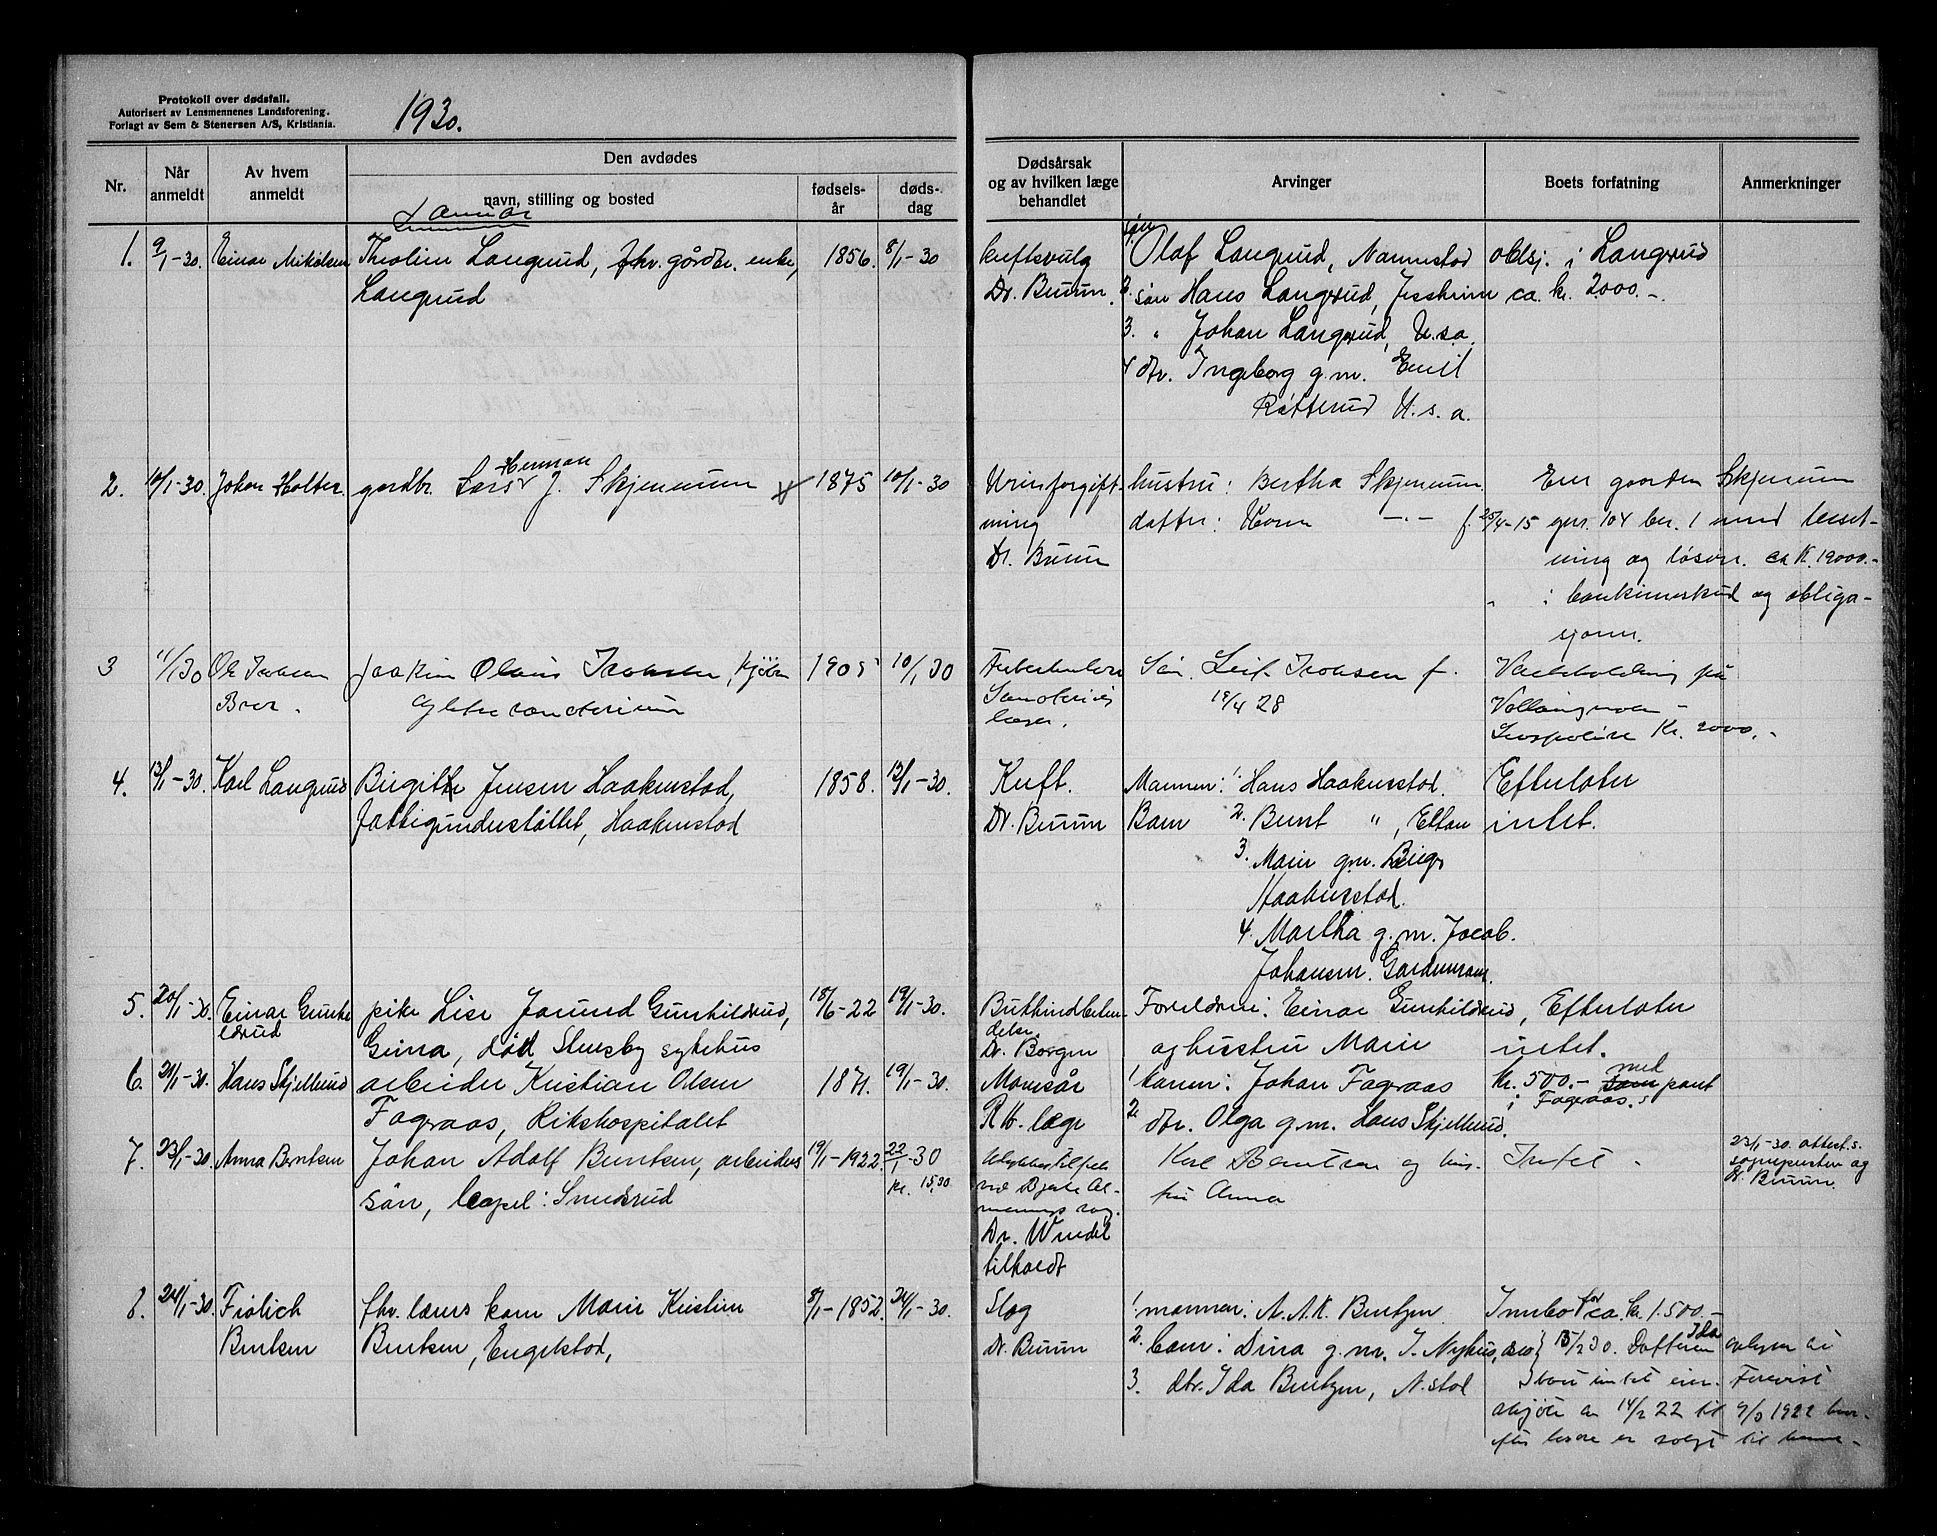 Protokoll over dødsfall.
Autorisert av Lensmennenes Landsforening.
Forlagt av Sem & Stenersen A/S, Kristiania.
1930.
Nr.
Når anmeldt
Av hvem anmeldt
Den avdødes
navn, stilling og bosted
fødsels-
år
døds-
dag
Dødsårsak
og av hvilken læge
behandlet
Arvinger
Boets forfatning
Anmerkninger
Januar
1. 9/1-30. Einar Mikalsen Theoline Langrud, fhv. gårdbr. enke, 1856. 8/1-30
Langrud
Dr. Burum.
Olaf Langrud, Nannestad
2. søn Hans Langrud, Jessheim
3. " Johan Langrud, U.s.a.
4 dtr. Ingeborg g.m. Emil
Røtterud U.s.a.
obsj. i Langrud
ca. kr. 2000.-.
2. 10/1-30. Johan Holter. gardbr. Lars Herman J. Skjennum 1875 10/1-30
Urinforgift-
ning
Dr. Burum
hustru: Bertha Skjennum.
datter: -"- f. 25/4-15
Eier gaarden Skjennum
gnr. 104 br. 1 med beset-
ning og løsøre. ca K. 19000.-
" i bankinnskud og obliga-
sjoner.
3 11/1 30 Ole Iversen
Bror.
Joakim Olaus 1905 10/1 30
sanatorium
Tuberkulose
Sanatoriets
læger.
Søn. Leif f.
19/4 28
på
-
Kr. 2000.-
4. 13/1-30. Karl Langrud Birgitte Jensen Haakenstad, 1858. 12/1-30.
fattigunderstøttet, Haakenstad
Kreft.
Dr. Burum
Mannen: 1. Hans Haakenstad.
Barn 2. Bernt ", Eltan
3. Marie g.m. Birger
Haakenstad.
4. Martha g.m. Jacob
Johansen. Gardermoen.
Efterlater
intet.
5. 20/1-30. Einar Gunhildrud pike Lise Jorund Gunhildrud, 18/6-22 19/1-30.
Gima, død Stensby sykehus
Dr. Borgen
Foreldrene: Einar Gunhildrud,
og hustru Marie
Efterlater
intet.
6. 21/1-30. Hans Skjellrud arbeider Kristian Olsen 1871. 19/1-30.
Fagraas, Rikshospitalet
Mavesår
R.H. læge
1 Johan Fagraas
2 dtr. Olga g.m. Hans Skjellrud.
Kr. 500.- med pant
i Fagraas.
7. 23/1-30. Anna Berntsen Johan Adolf Berntsen, arbeiders 19/1-1922 22/1-30
kl. 15,30
søn, kapel: Smedsrud
Ulykkestilfelle
ved Bjerke Al-
mennings sag.
Dr. Wendel
tilkaldt
Karl Berntsen og hus-
tru Anna
Intet -
23/1-30. attest s.
sognepresten og
Dr. Burum.
8. 24/1-30. Frølich
Berntsen
fhv. lærers kone Marie Kristine 8/1-1852 24/1-30.
Berntsen, Engelstad,
Slag
Dr. Burum
1. mannen: A. A. K. Berntzen
2. barn: Dina g.m. J. Nyhus,
3. dtr. Ida Berntzen, N.stad
Innbo for ca. kr. 1.500.-
15/2 30. Datteren Ida oplyser at
boet intet eier. Forevist
skjøte av 14/2 22 til 9/3 1922
efter er solgt til henne.